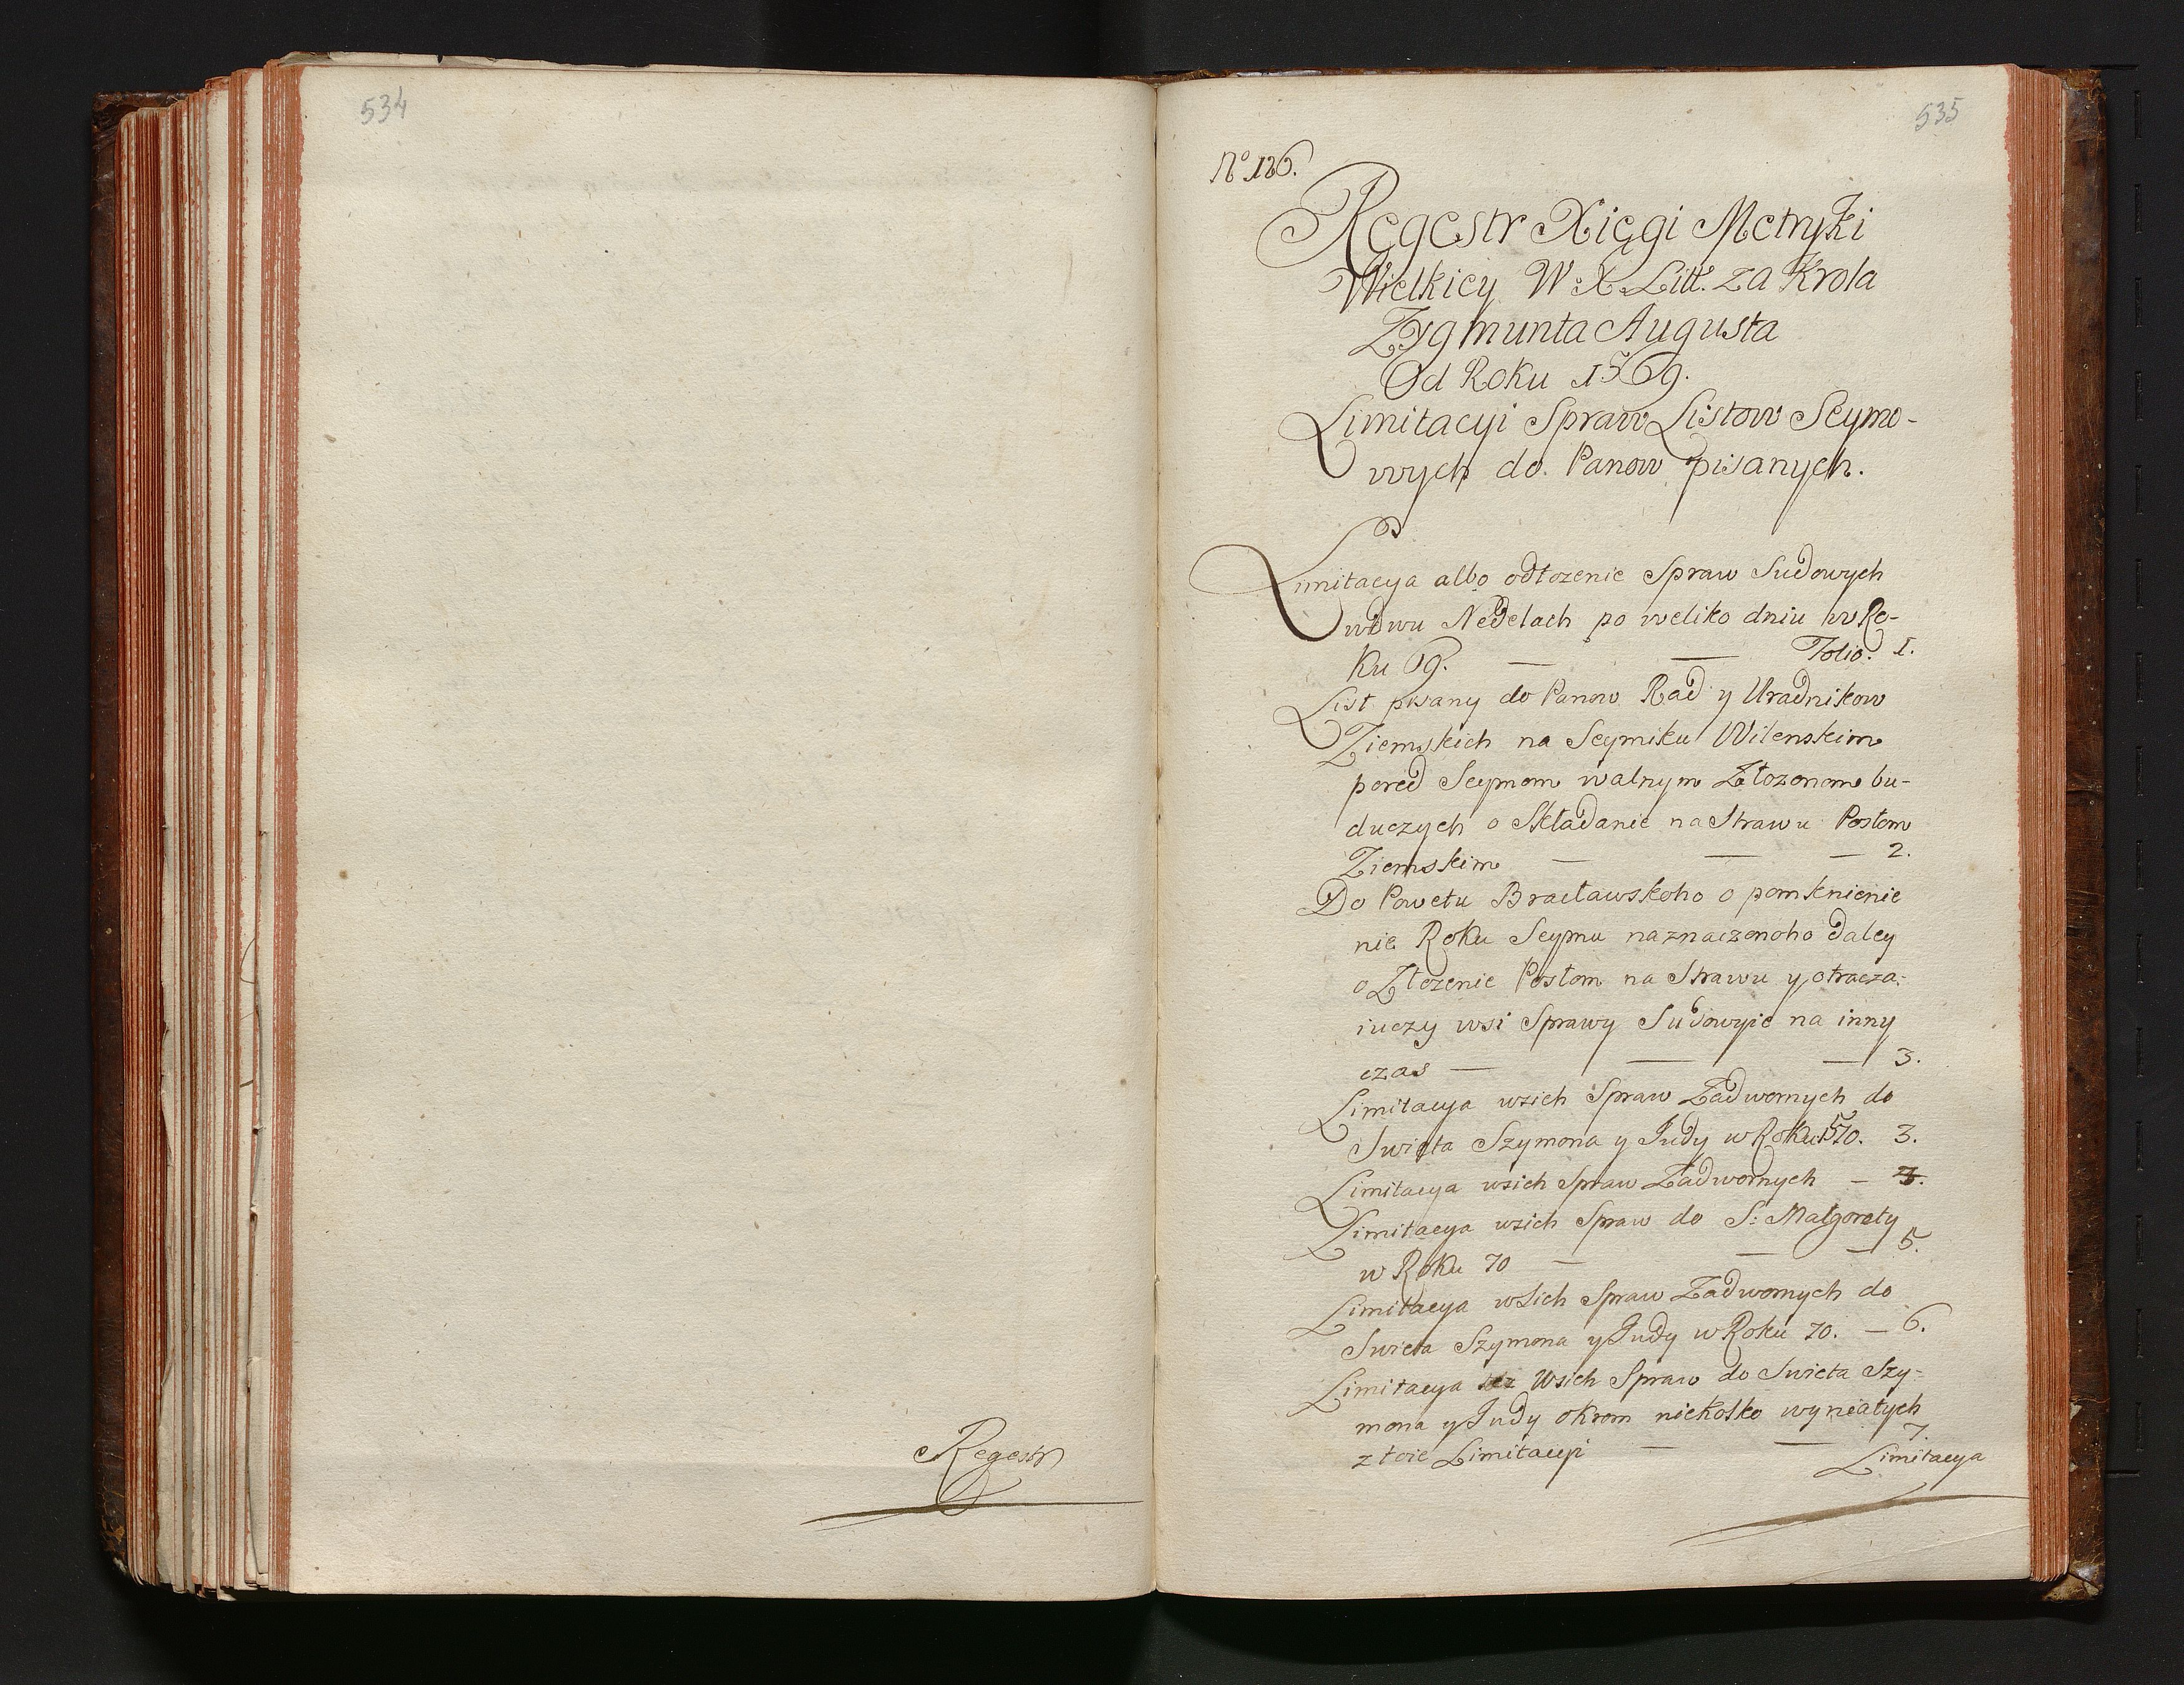 534
Regestr
535
No 126.
Regestr Xięgi Metryki
Wielkiey W X Litt. za Krola
Zygmunta Augusta
Od Roku 1569.
Limitacyi Spraw Listow Seymo-
wych do Panow pisanych.
Limitacya albo odłozenie Spraw Sudowych
w dwu Nedelach po weliko dniu w Ro-
ku 69. — — Folio. 1.
List pisany do Panow Rad y Uradnikow
Ziemskich na Seymiku Wilenskim
pered Seymom walnym Złozonom bu-
duczych o Składanie na Strawu Posłom
Ziemskim — — — 2.
Do Powetu Bracławskoho o pomknienie
nie Roku Seymu naznaczonoho daley
o Złozenie Posłom na Strawu y otracza-
iuczy wsi Sprawy Sudowyie na inny
czas — — — 3.
Limitacya wsich Spraw Zadwornych do
Swięta Szymona y Judy w Roku 1570. 3.
Limitacya wsich Spraw Zadwornych —
Limitacya wsich Spraw do S: Małgorety
w Roku 70 — — — 5.
Limitacya wsich Spraw Zadwornych do
Swieta Szymona y Judy w Roku 70. — 6.
Limitacya Wsich Spraw do Swieta Szy-
mona y Judy okrom niekolko wyniatych
z toie Limitacyi — — 7.
Limitacya